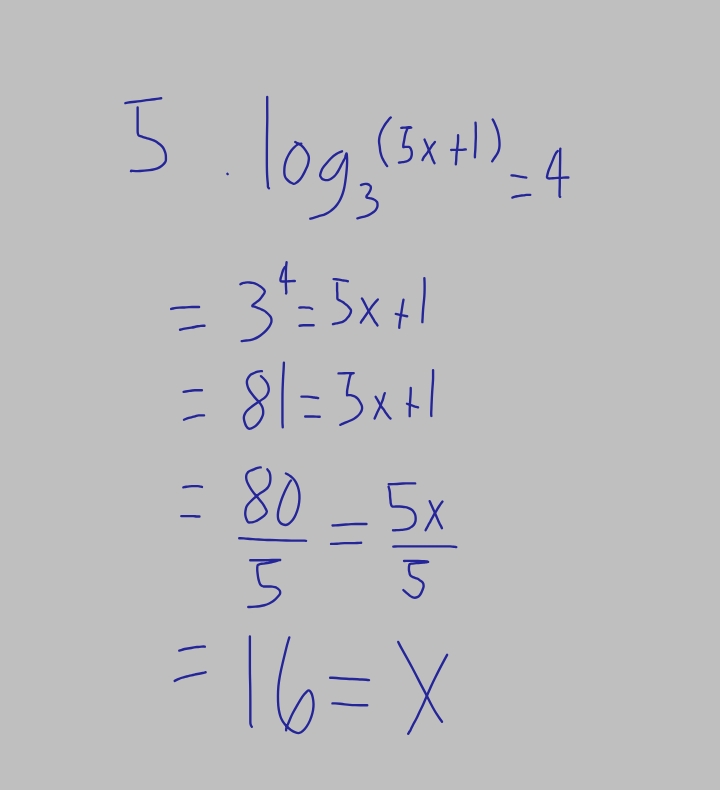 5 . log₃^(5x+1) = 4
= 3⁴ = 5x+1
= 81 = 5x+1
= 80/5 = 5x/5
= 16 = X